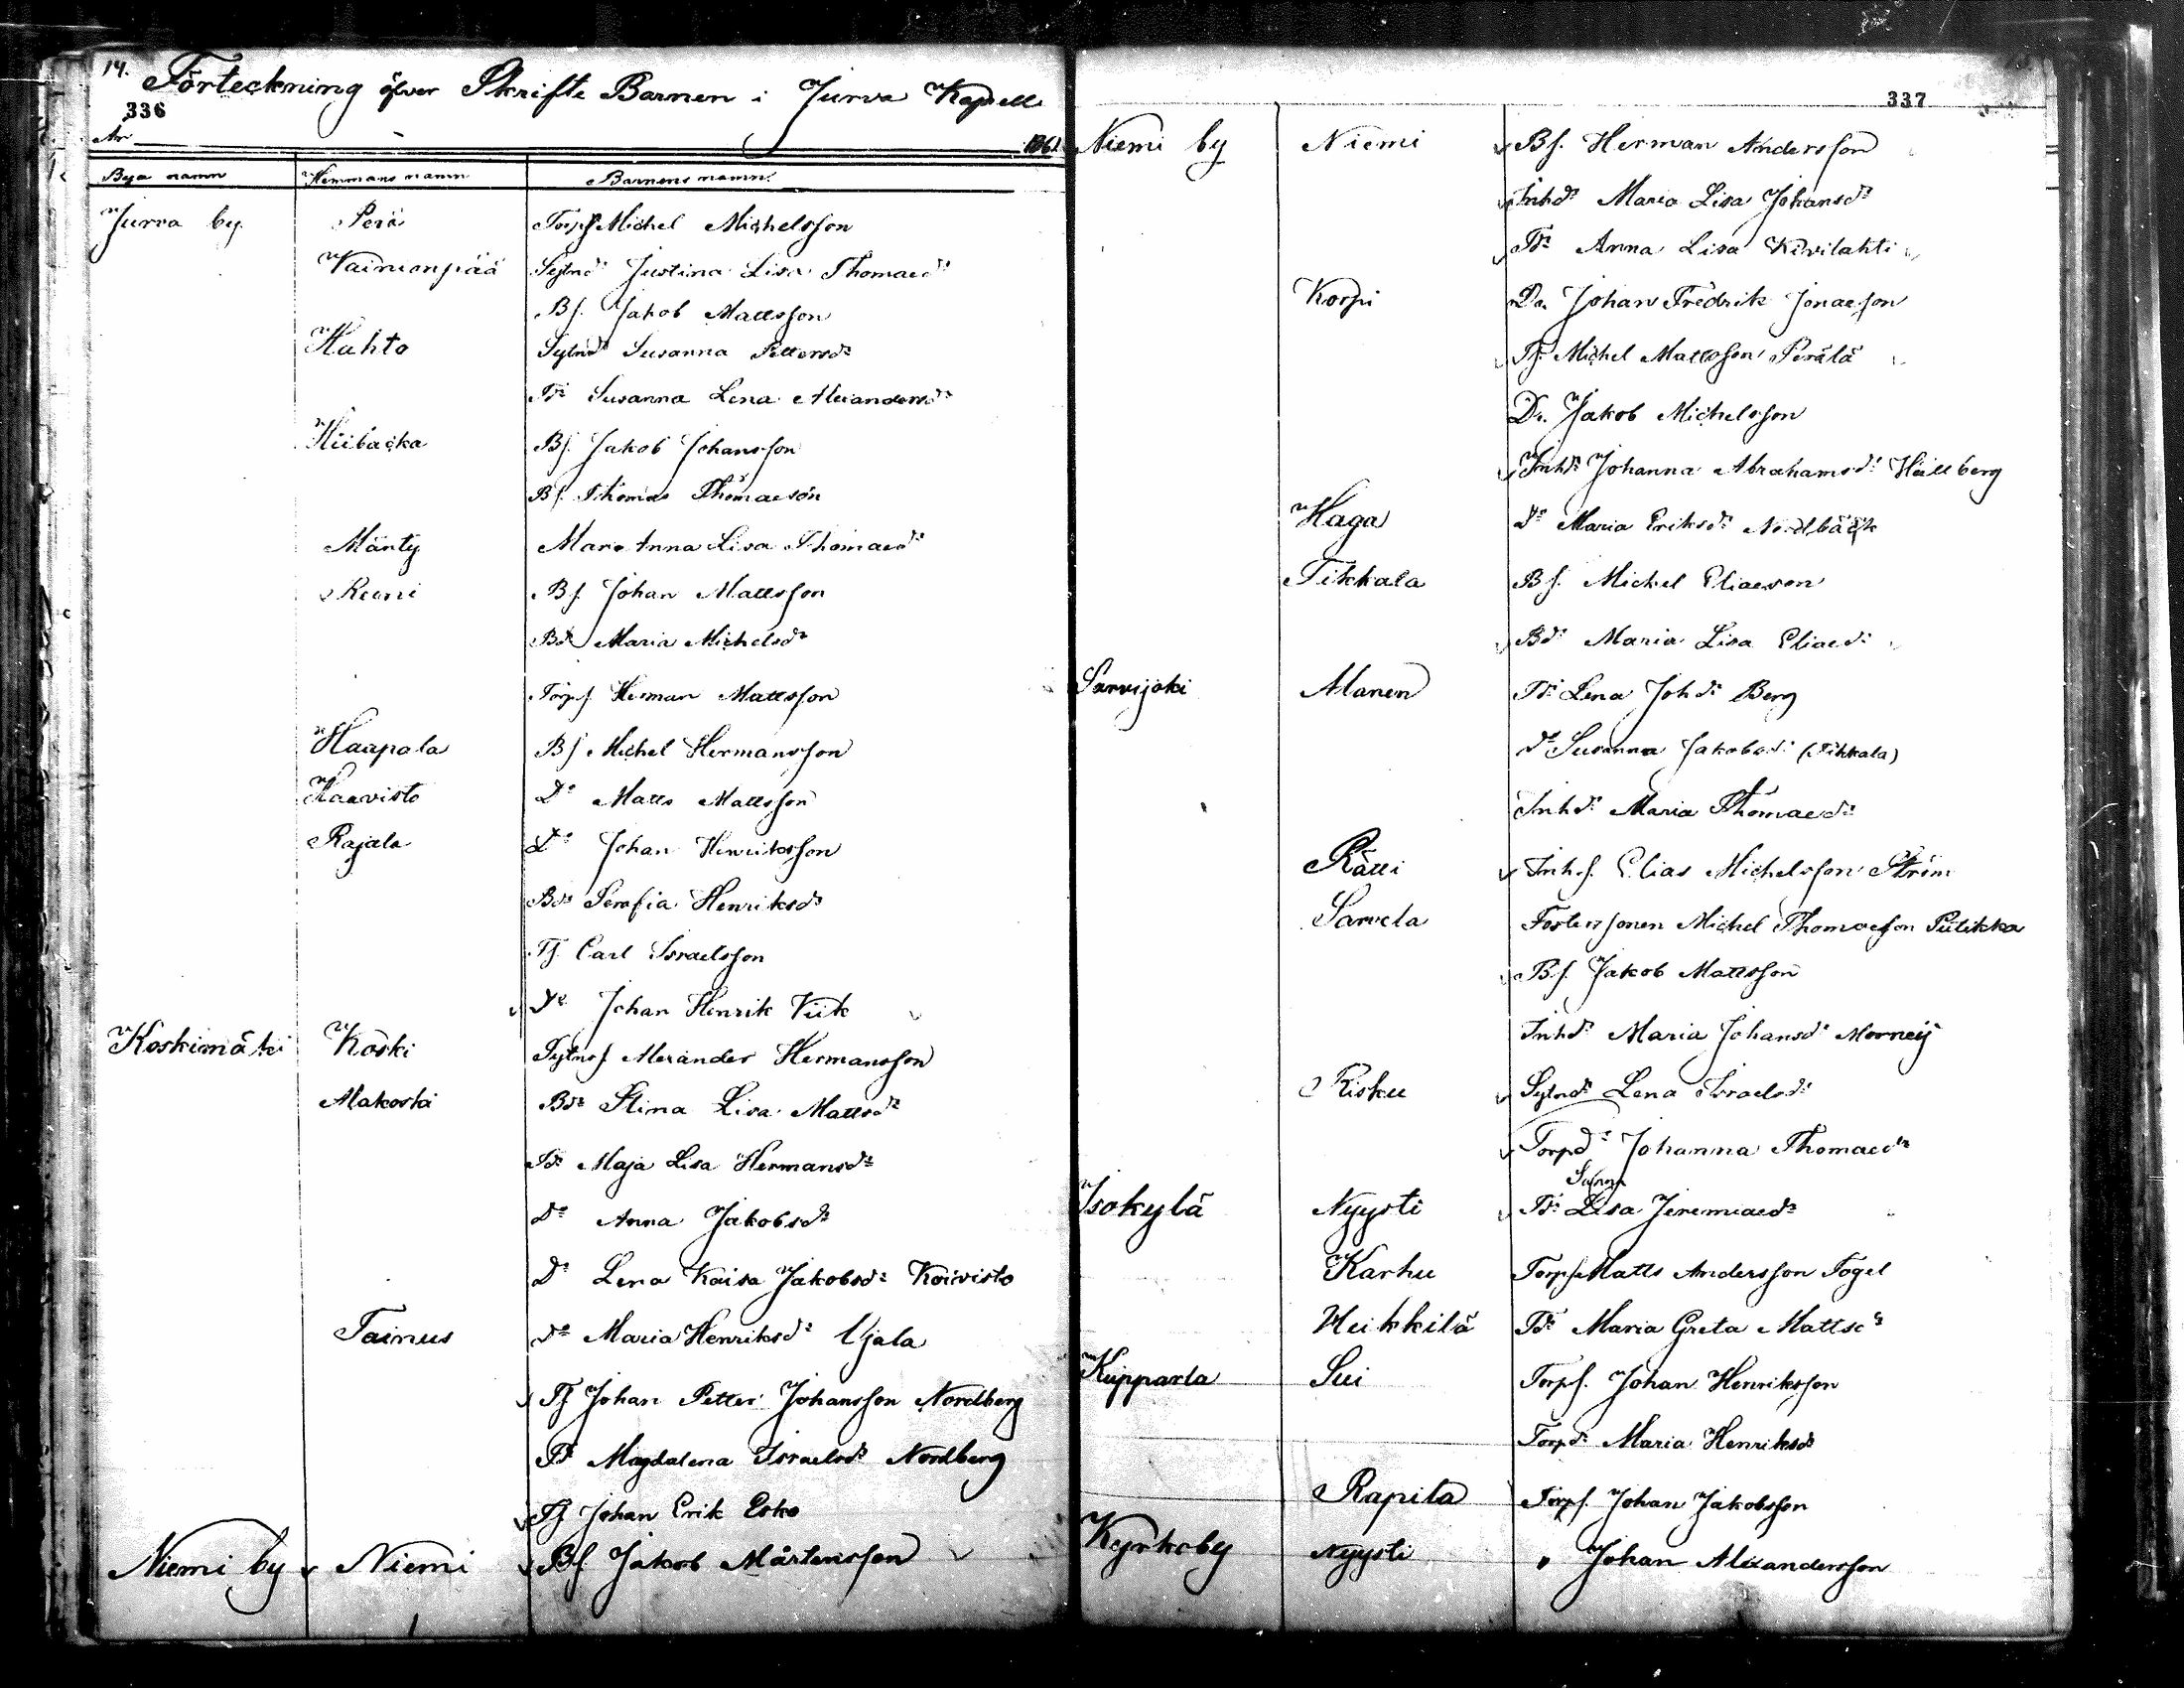 14.
Förteckning öfver Skrifte Barnen i Jurva Kapell
336
År 1861
Bya namn Hemmans namn Barnens namn
Jurva by Perä Torpf Michel Michelsson
Vainionpää Sytnd:r Justina Lisa Thomaed:r
Bf. Jakob Mattsson
Hahto Sytnd:r Susanna Pettersd:r
Td:r Susanna Lena Alexandersd:r
Hiibacka Bf. Jakob Johansson
Bf. Thomas Thomaeson
Mänty Anna Lisa Thomaed:r
Reini Bf Johan Mattsson
Bd:r Maria Michelsd:r
Torpf. Herman Mattsson
Haapala Bf Michel Hermansson
Haavisto D:o Matts Mattsson
Rajala D:o Johan Henriksson
Bd:r Serafia Henriksd:r
Tf. Carl Israelsson
D:o Johan Henrik Viik
Koskimäki Koski Sytnf Alexander Hermansson
Alakoski Bd:r Stina Lisa Mattsd:r
Td:r Maja Lisa Hermansd:r
D:o Anna Jakobsd:r
D:o Lena Kaisa Jakobsd:r Koivisto
Tainus D:o Maria Henriksd:r Ujala
Tf Johan Petter Johansson Nordberg
Td:r Magdalena Israelsd:r Nordberg
Tf Johan Erik Esko
Niemi by Niemi Bf Jakob Mårtensson
337
Niemi by Niemi Bf. Herman Andersson
Inhd:r Maria Lisa Johansd:r
Td:r Anna Lisa Kivilahti
Korpi Do. Johan Fredrik Jonaeson
Tf. Michel Mattsson Perälä
Dr. Jakob Michelsson
Inhd:r Johanna Abrahamsd:r Hällberg
Haga D:o Maria Eriksd:r Nordbäck
Tikkala Bf. Mickel Eliaeson
Bd:r Maria Lisa Eliaed:r
Sarvijoki Alanen Td:r Lena Johd:r Berg
D:o Susanna Jakobsd:r (Tikkala)
Inhd:r Maria Thomaed:r
Rätti Inhf. Elias Michelsson Ström
Sarvela Fostersonen Michel Thomaeson Piilikka
Bf. Jakob Mattsson
Inhd:r Maria Johansd:r Morneij
Risku Sytnd:r Lena Israelsd:r
Torpd:r Johanna Thomaed:r
Sanna
Isokylä Nyysti Td:r Lisa Jeremiaed:r
Karhu Torpf Matts Andersson Fogel
Heikkilä Td:r Maria Greta Mattsd:r
Kupparla Sui Torpf. Johan Henriksson
Torpd:r Maria Henriksd:r
Rapila Torpf. Johan Jakobsson
Kyrkoby Nyysti " Johan Alexandersson